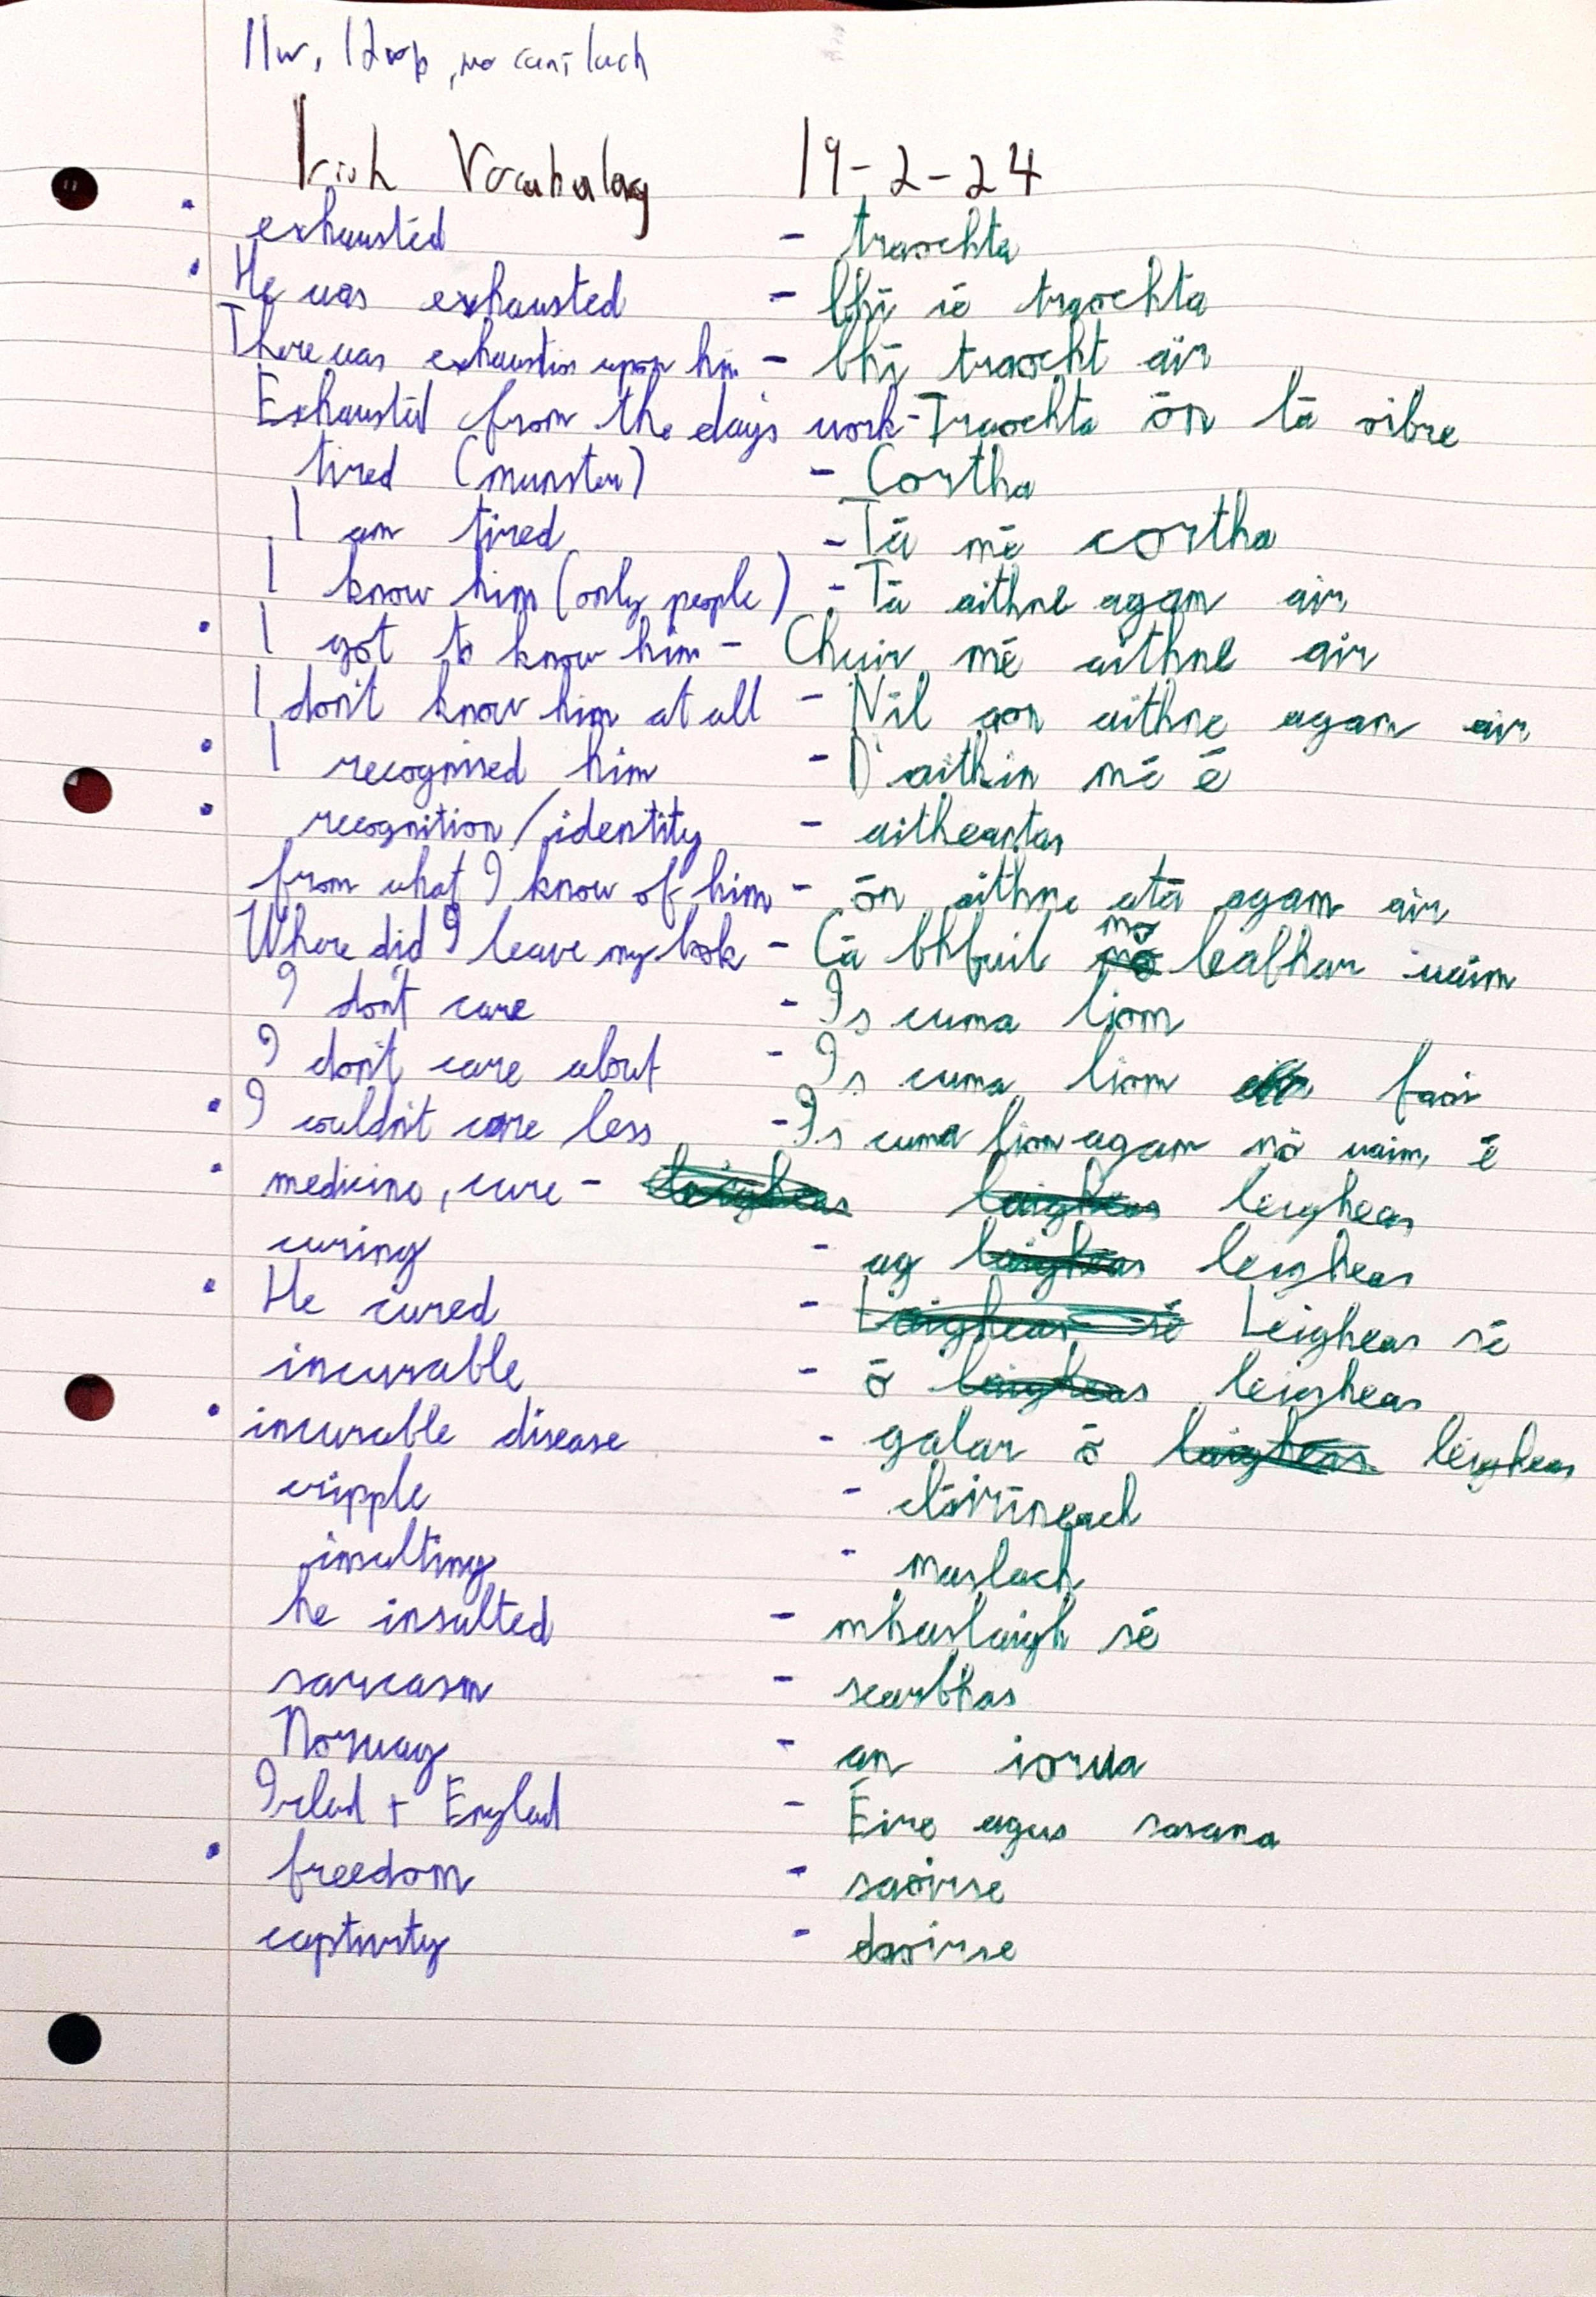 11w, 12
Irish Vocabulary 19-2-24
• exhausted - traochta
• He was exhausted - bhí sé traochta
There was exhaustion upon him - bhí traocht air
Exhausted from the days work - Traochta ón lá oibre
tired (munster) - Cortha
I am tired - Tá mé cortha
I know him (only people) - Tá aithne agam air
• I got to know him - Chuir mé aithne air
I don't know him at all - Níl aon aithne agam air
• I recognised him - D'aithin mé é
• recognition/identity - aitheantas
from what I know of him - ón aithne atá agam air
Where did I leave my book - Cá bhfuil mo leabhar uaim
I don't care - Is cuma liom
I don't care about - Is cuma liom faoi
• I couldn't care less - Is cuma liom agam nó uaim é
• medicine, cure - leigheas
curing - ag leigheas
• He cured - Leigheas sé
incurable - ó leigheas
• incurable disease - galar ó leigheas
cripple - cláiríneach
insulting - maslach
he insulted - mhaslaigh sé
sarcasm - searbhas
Norway - an iorua
Irelad + Englad - Éire agus sasana
• freedom - saoirse
captivity - daoirse